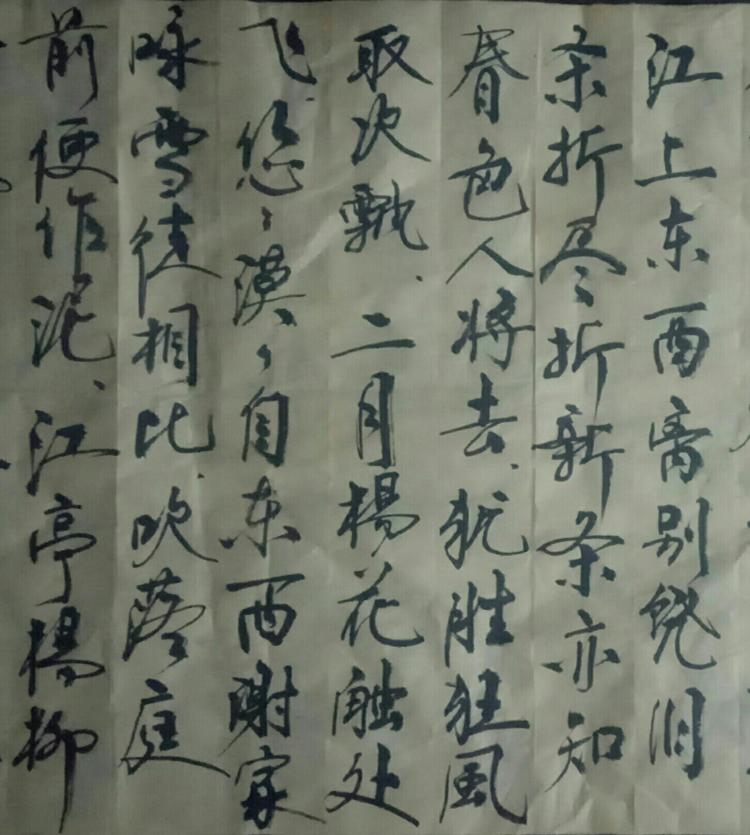 江上东西离别饶旧
条折尽折新条亦知
春色人将去、犹胜狂風
取次飘、二月楊花触处
飞悠〻漠〻自东西謝家
咏雪徒相比吹落庭
前便作泥、江亭楊柳